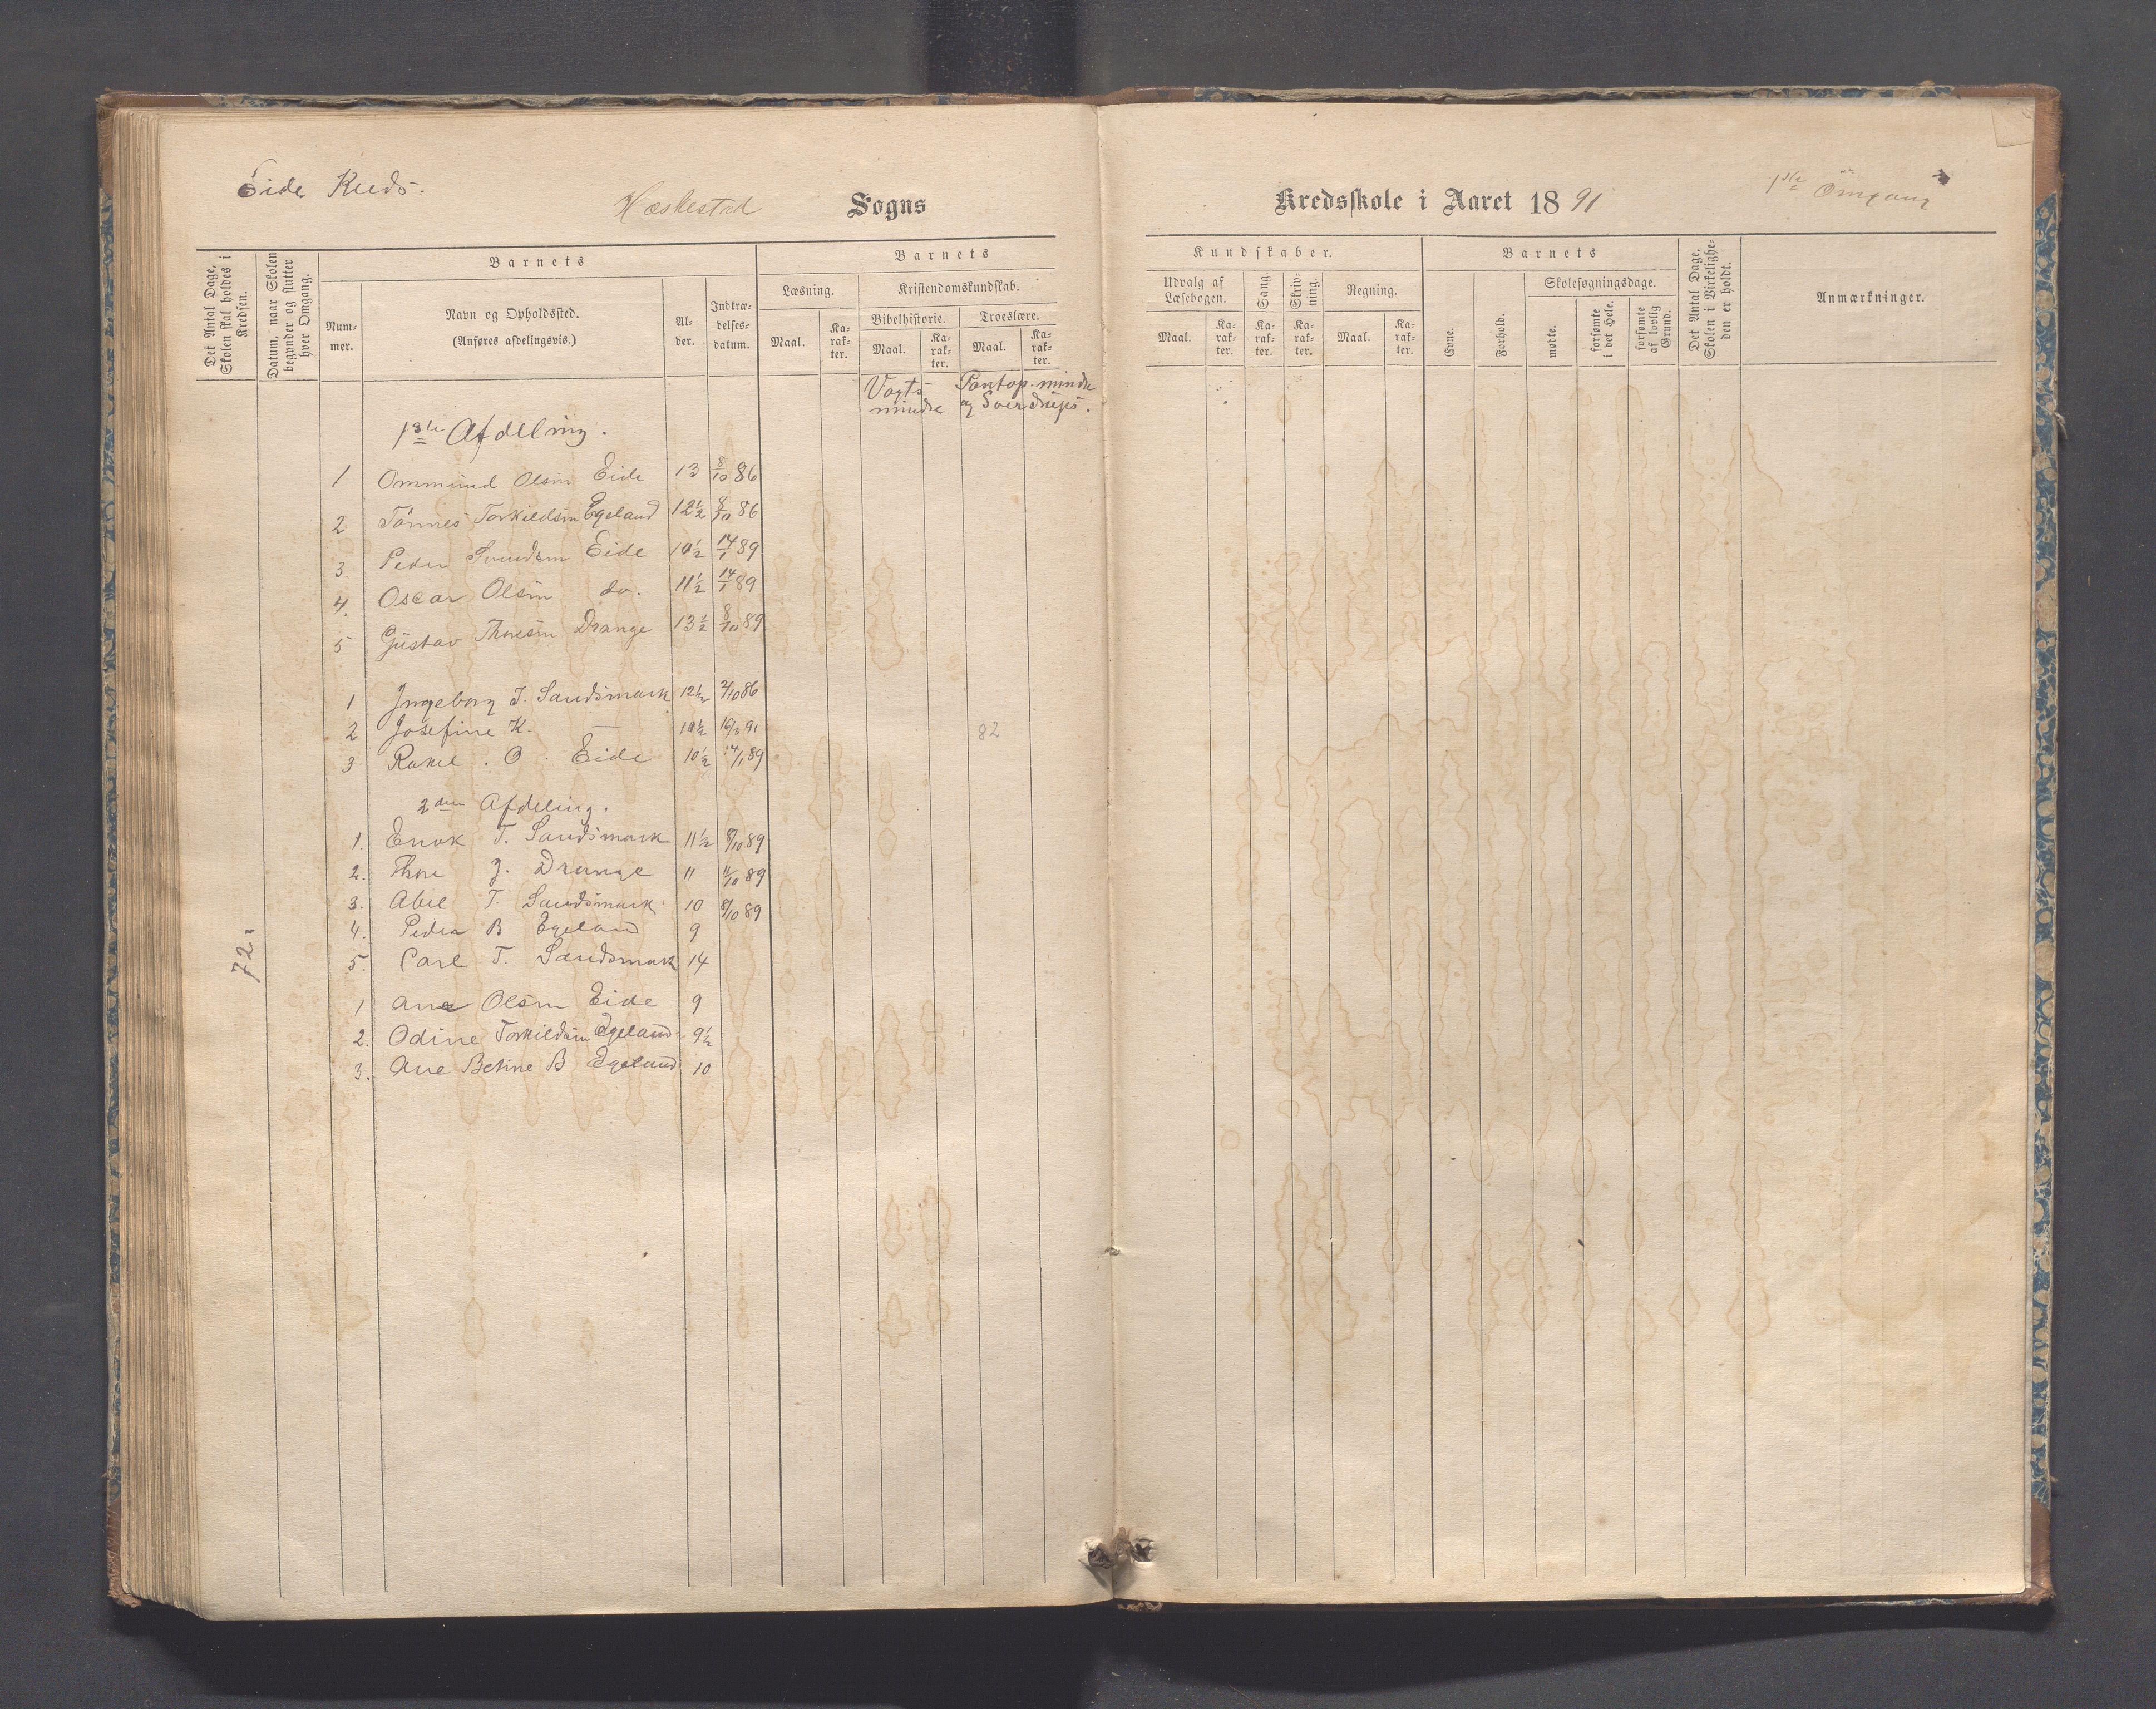 Eide Kreds.
Hæskestad Sogns
Kredsskole i Aaret 1891
1ste Omgang
Det Antal Dage, Skolen skal holdes i Kredsen.
Datum, naar Skolen begynder og slutter hver Omgang.
Barnets
Num-mer.
Navn og Opholdssted.
(Anføres afdelingsvis.)
Al-der.
Indtræ-delses-datum.
Barnets
Læsning.
Kristendomskundskab.
Bibelhistorie.
Troeslære.
Maal.
Ka-rak-ter.
Maal.
Ka-rak-ter.
Maal.
Ka-rak-ter.
Kundskaber.
Udvalg af Læsebogen.
Sang.
Skriv-ning.
Regning.
Maal.
Ka-rak-ter.
Ka-rak-ter.
Ka-rak-ter.
Maal.
Ka-rak-ter.
Barnets
Evne.
Forhold.
Skolesøgningsdage.
mødte.
forsømte i det Hele.
forsømte af lovlig Grund.
Det Antal Dage, Skolen i Virkelighe-den er holdt.
Anmærkninger.
Vogts mindre
Pontop. mindre og Sverdrups.
1ste Afdeling.
1 Ommund Olsen Eide 13 8/10 86
2 Tönnes Torkildsen Egeland 12 1/2 8/10 86
3. Peder Svendsen Eide 10 1/2 14/1 89
4. Oscar Olsen do. 11 1/2 14/1 89
5 Gustav Thoresen Drange 13 1/2 8/10 89
1 Ingeborg T. Sandsmark 12 1/2 2/10 86
2 Josefine K. — 10 1/2 16/3 91
82
3 Rakel . O . Eide 10 1/2 14/1 89
2den Afdeling.
1. Enok T. Sandsmark 11 1/2 8/10 89
2. Thore J. Drange 11 11/10 89
3. Abel T. Sandsmark 10 8/10 89
4. Peder B Egeland 9
72
5. Carl T. Sandsmark 14
1 Ane Olsen Eide 9
2. Odine Torkildsen Egeland 9 1/2
3. Ane Betine B Egeland 10